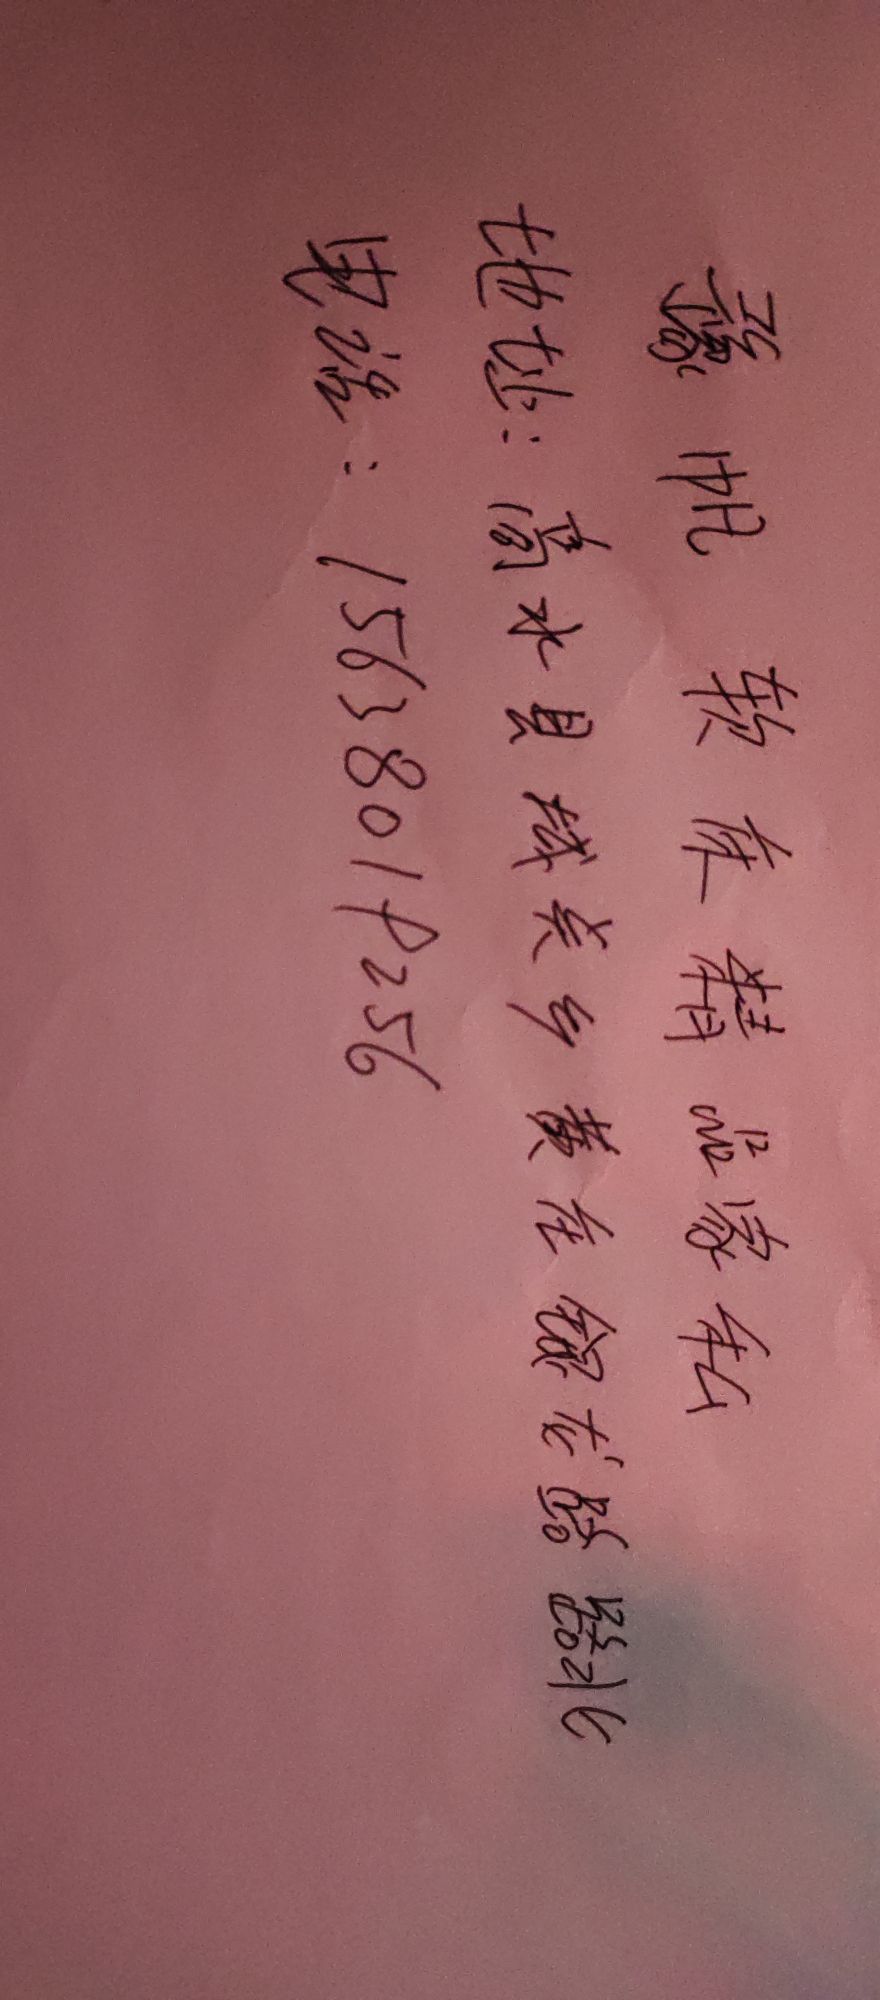 豫帆软床精品家私
地址：商水县城关乡黄庄银龙路路北
电话：15638019256